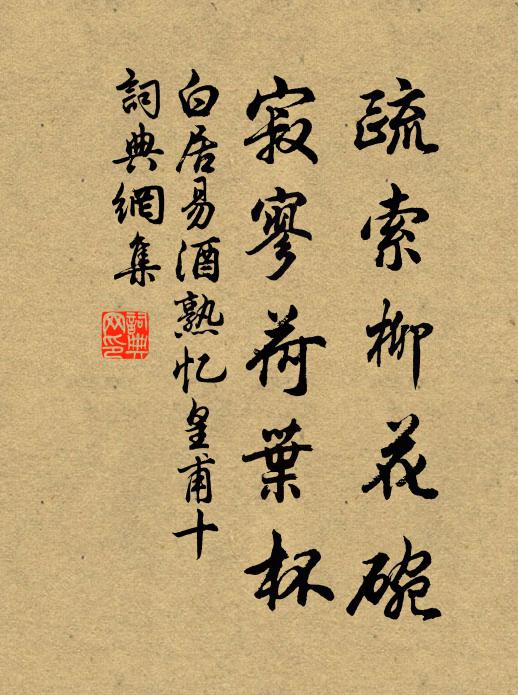 疏索柳花碗
寂寥荷葉杯
白居易酒熟忆皇甫十
詞典網集
詞典網印